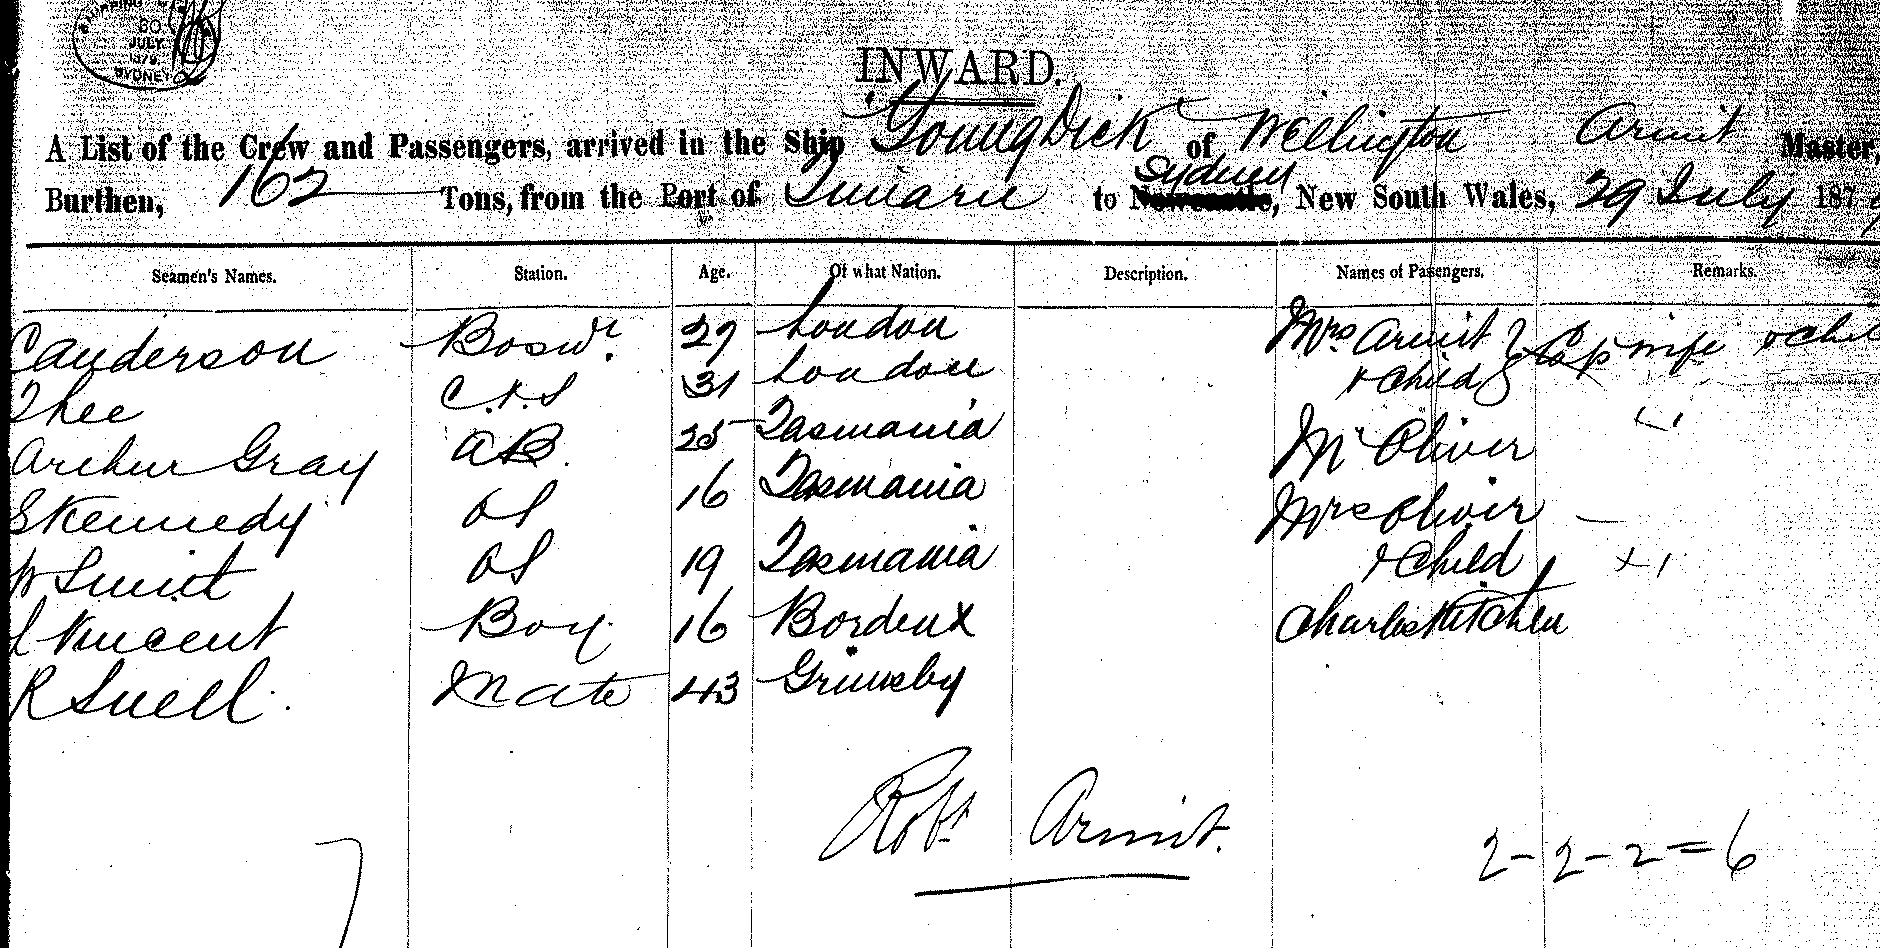 30
JULY
1879
SYDNEY
INWARD.
A List of the Crew and Passengers, arrived in the Ship Young Dick of Wellington Armit Master,
Burthen, 162 Tons, from the Port of Timaru to Sydney Newcastle, New South Wales, 29 July 1879
Seamen's Names. Station. Age. Of what Nation. Description. Names of Passengers. Remarks.
C Anderson Boswn. 29 London Mrs Armit Cap wife & chil
Thee C. & S 31 London & Child
Arthur Gray AB. 25 Tasmania Mr Oliver
S Kennedy OS 16 Tasmania Mrs Oliver
W Smit OS 19 Tasmania & Child
Vincent Boy 16 Bordeux Charles Kitchen
R Snell. Mate 43 Grimsby
Robt Armit.
2-2-2=6
7